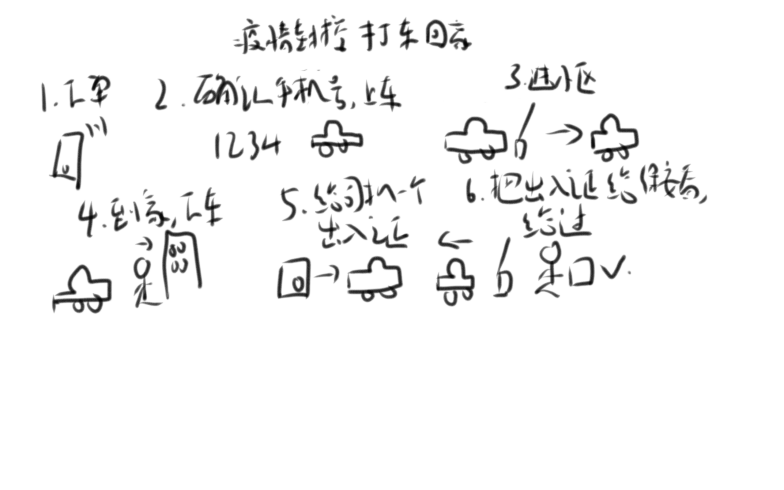 疫情封控 打车回家
1.下单
2.确认手机号,上车
3.进小区
1234
4.到家,下车
5.给司机一个
出入证
6.把出入证给保安看,
给过